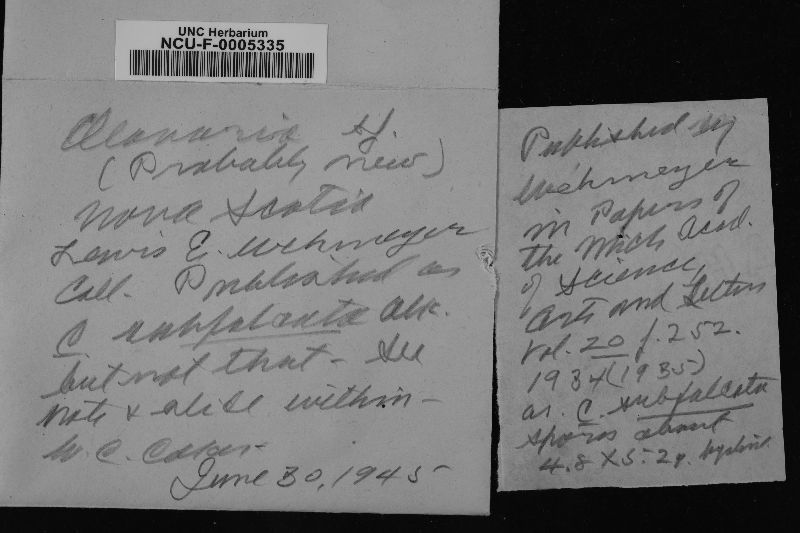 UNC Herbarium
NCU-F-0005335
Clavaria sp.
(Probably new)
Nova Scotia
Lewis E. Wehmeyer
Coll. Published as
C. subfalcata Atk.
but not that - See
note & slide within -
W. C. Coker
June 30, 1945
Published by
Wehmeyer
in Papers of
the Mich Acad.
of Science,
Arts and Letters
Vol. 20 p. 252.
1934 (1935)
as C. subfalcata
spores about
4.8 X 5.2µ. hyaline